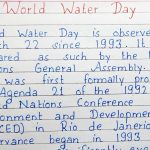 World Water Day
d Water Day is observed
ch 22 since 1993. It w
ared as such by the
ons General Assembly.
was first formally pro
Agenda 21 of the 1992
d Nations Conference
onment and Developmen
CED) in Rio de Janerio
ervance began in 1993